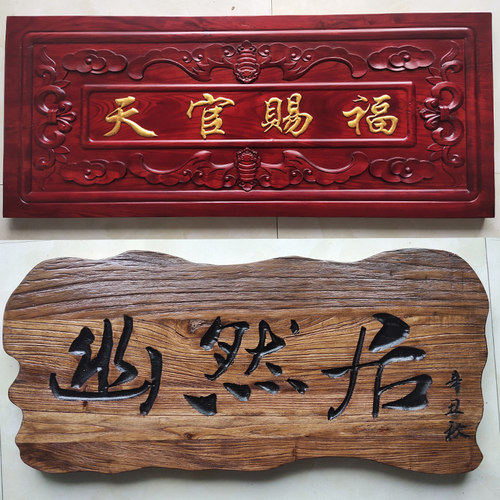 天官賜福
幽然居
辛丑秋